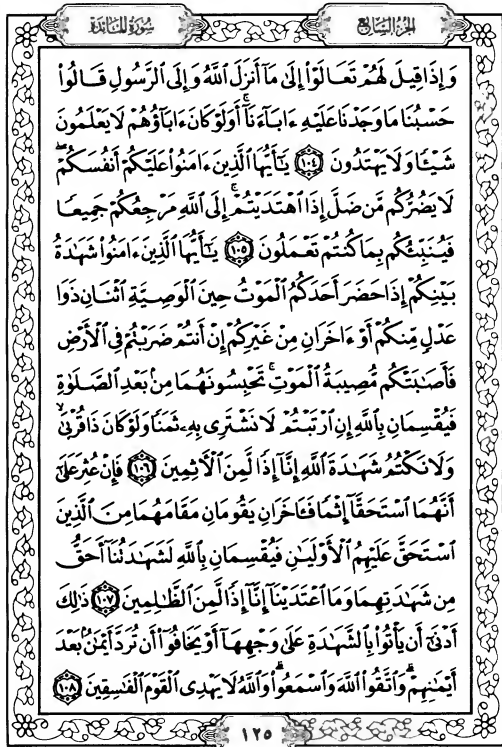 سُورَةُ المَائدَة
الجزء السَّابِع
وَإِذَا قِيلَ لَهُمْ تَعَالَوْا۟ إِلَىٰ مَآ أَنزَلَ ٱللَّهُ وَإِلَى ٱلرَّسُولِ قَالُوا۟
حَسْبُنَا مَا وَجَدْنَا عَلَيْهِ ءَابَآءَنَآ ۚ أَوَلَوْ كَانَ ءَابَآؤُهُمْ لَا يَعْلَمُونَ
شَيْـًٔا وَلَا يَهْتَدُونَ ١٠٤ يَـٰٓأَيُّهَا ٱلَّذِينَ ءَامَنُوا۟ عَلَيْكُمْ أَنفُسَكُمْ ۖ
لَا يَضُرُّكُم مَّن ضَلَّ إِذَا ٱهْتَدَيْتُمْ ۚ إِلَى ٱللَّهِ مَرْجِعُكُمْ جَمِيعًا
فَيُنَبِّئُكُم بِمَا كُنتُمْ تَعْمَلُونَ ١٠٥ يَـٰٓأَيُّهَا ٱلَّذِينَ ءَامَنُوا۟ شَهَـٰدَةُ
بَيْنِكُمْ إِذَا حَضَرَ أَحَدَكُمُ ٱلْمَوْتُ حِينَ ٱلْوَصِيَّةِ ٱثْنَانِ ذَوَا
عَدْلٍ مِّنكُمْ أَوْ ءَاخَرَانِ مِنْ غَيْرِكُمْ إِنْ أَنتُمْ ضَرَبْتُمْ فِى ٱلْأَرْضِ
فَأَصَـٰبَتْكُم مُّصِيبَةُ ٱلْمَوْتِ ۚ تَحْبِسُونَهُمَا مِنۢ بَعْدِ ٱلصَّلَوٰةِ
فَيُقْسِمَانِ بِٱللَّهِ إِنِ ٱرْتَبْتُمْ لَا نَشْتَرِى بِهِۦ ثَمَنًا وَلَوْ كَانَ ذَا قُرْبَىٰ ۙ
وَلَا نَكْتُمُ شَهَـٰدَةَ ٱللَّهِ إِنَّآ إِذًا لَّمِنَ ٱلْـَٔاثِمِينَ ١٠٦ فَإِنْ عُثِرَ عَلَىٰٓ
أَنَّهُمَا ٱسْتَحَقَّآ إِثْمًا فَـَٔاخَرَانِ يَقُومَانِ مَقَامَهُمَا مِنَ ٱلَّذِينَ
ٱسْتَحَقَّ عَلَيْهِمُ ٱلْأَوْلَيَـٰنِ فَيُقْسِمَانِ بِٱللَّهِ لَشَهَـٰدَتُنَآ أَحَقُّ
مِن شَهَـٰدَتِهِمَا وَمَا ٱعْتَدَيْنَآ إِنَّآ إِذًا لَّمِنَ ٱلظَّـٰلِمِينَ ١٠٧ ذَٰلِكَ
أَدْنَىٰٓ أَن يَأْتُوا۟ بِٱلشَّهَـٰدَةِ عَلَىٰ وَجْهِهَآ أَوْ يَخَافُوٓا۟ أَن تُرَدَّ أَيْمَـٰنٌۢ بَعْدَ
أَيْمَـٰنِهِمْ ۗ وَٱتَّقُوا۟ ٱللَّهَ وَٱسْمَعُوا۟ ۗ وَٱللَّهُ لَا يَهْدِى ٱلْقَوْمَ ٱلْفَـٰسِقِينَ ١٠٨
١٢٥